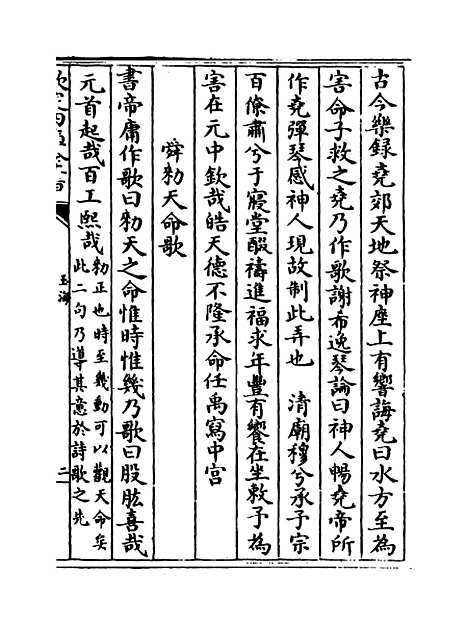 古今樂錄堯郊天地祭神座上有響誨堯曰水方至為
害命子救之堯乃作歌謝希逸琴論曰神人暢堯帝所
作堯彈琴感神人現故制此弄也　清廟穆兮承予宗
百僚肅兮于寢堂醊禱進福求年豐有響在坐敕予為
害在元中欽哉皓天德不隆承命任禹寫中宮
舜勑天命歌
書帝庸作歌曰勑天之命惟時惟幾乃歌曰股肱喜哉
元首起哉百工熙哉勑正也時至幾動可以觀天命矣
此二句乃導其意於詩歌之先
玉海
二